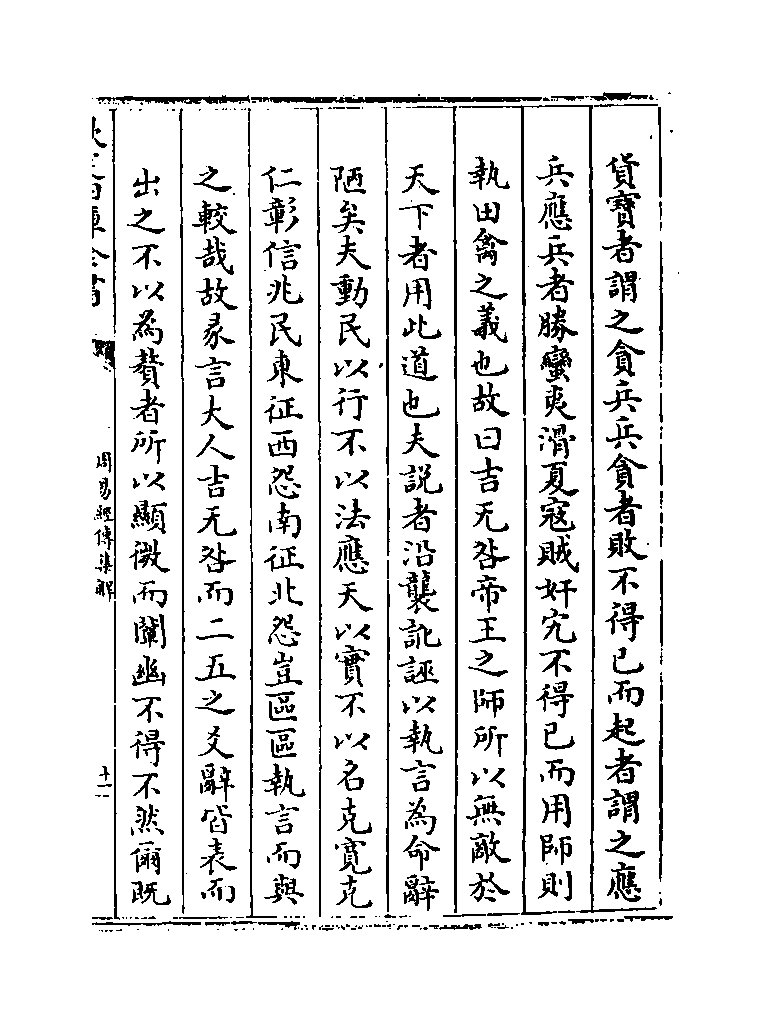 貨寶者謂之貪兵兵貪者敗不得已而起者謂之應
兵應兵者勝蠻夷滑夏寇賊奸宄不得已而用師則
執田禽之義也故曰吉无咎帝王之師所以無敵於
天下者用此道也夫説者沿襲訛誣以執言為命辭
陋矣夫動民以行不以法應天以實不以名克寛克
仁彰信兆民東征西怨南征北怨豈區區執言而與
之較哉故彖言大人吉无咎而二五之爻辭皆表而
出之不以為贅者所以顯微而闡幽不得不然爾既
欽定四庫全書
周易經傳集解
十一